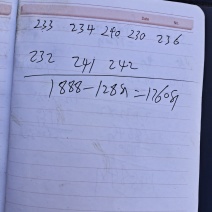 Date No.
233 234 240 230 236
232 241 242
1888-128斤=1760斤